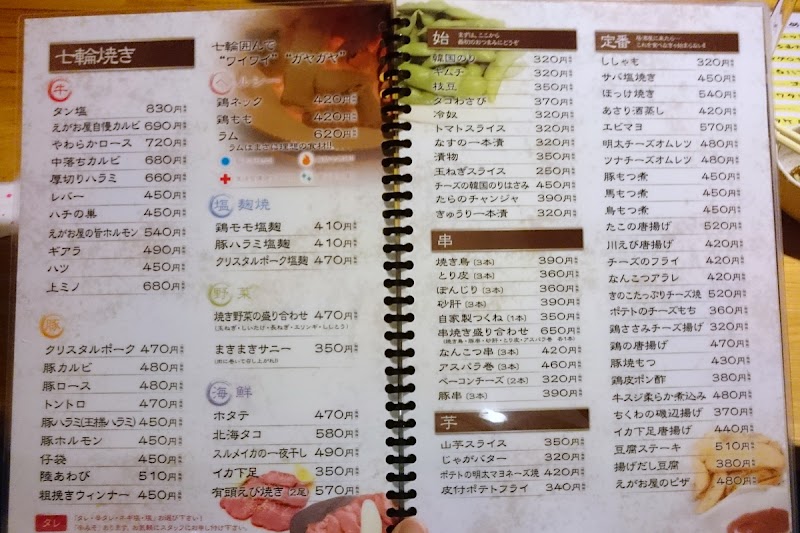 七輪焼き
牛
タン塩 830円
えがお屋自慢カルビ 690円
やわらかロース 720円
中落ちカルビ 660円
厚切りハラミ 660円
レバー 450円
ハチの巣 450円
えがお屋の旨ホルモン 540円
ギアラ 490円
ハツ 450円
上ミノ 680円
豚
クリスタルポーク 470円
豚カルビ 480円
豚ロース 480円
トントロ 470円
豚ハラミ(王様ハラミ) 450円
豚ホルモン 450円
仔袋 450円
陸あわび 510円
粗挽きウィンナー 450円
タレ
七輪囲んで
“ワイワイ” “ガヤガヤ”
ヘルシー
鶏ネック 420円
鶏もも 420円
ラム 620円
塩麹焼
鶏モモ塩麹 410円
豚ハラミ塩麹 410円
クリスタルポーク塩麹 470円
野菜
焼き野菜の盛り合わせ 470円
(玉ねぎ・しいたけ・長ねぎ・エリンギ・ししとう)
まきまきサニー 350円
(肉に巻いて召し上がれ)
海鮮
ホタテ 470円
北海タコ 580円
スルメイカの一夜干し 490円
イカ下足 350円
有頭えび焼き(2尾) 570円
始
まずは、ここから
最初のおつまみにどうぞ
韓国のり 320円
キムチ 320円
枝豆 320円
タコわさび 370円
冷奴 320円
トマトスライス 320円
なすの一本漬 320円
漬物 350円
玉ねぎスライス 250円
チーズの韓国のりはさみ 450円
たらのチャンジャ 390円
きゅうり一本漬 320円
串
焼き鳥(3本) 390円
とり皮(3本) 360円
ぼんじり(3本) 360円
砂肝(3本) 390円
自家製つくね(1本) 350円
串焼き盛り合わせ 650円
(焼き鳥・豚串・砂肝・とり皮・アスパラ巻 各1本)
なんこつ串(3本) 420円
アスパラ巻(3本) 460円
ベーコンチーズ(2本) 320円
豚串(3本) 390円
芋
山芋スライス 350円
じゃがバター 320円
ポテトの明太マヨネーズ焼 420円
皮付ポテトフライ 340円
定番
ししゃも 320円
サバ塩焼き 450円
ほっけ焼き 540円
あさり酒蒸し 420円
エビマヨ 570円
明太チーズオムレツ 480円
ツナチーズオムレツ 480円
豚もつ煮 450円
馬もつ煮 450円
鳥もつ煮 450円
たこの唐揚げ 520円
川えび唐揚げ 420円
チーズのフライ 420円
なんこつアラレ 420円
きのこたっぷりチーズ焼 520円
ポテトのチーズもち 360円
鶏ささみチーズ揚げ 320円
鶏の唐揚げ 470円
豚焼もつ 430円
鶏皮ポン酢 380円
牛スジ柔らか煮込み 480円
ちくわの磯辺揚げ 370円
イカ下足唐揚げ 440円
豆腐ステーキ 510円
揚げだし豆腐 380円
えがお屋のピザ 480円